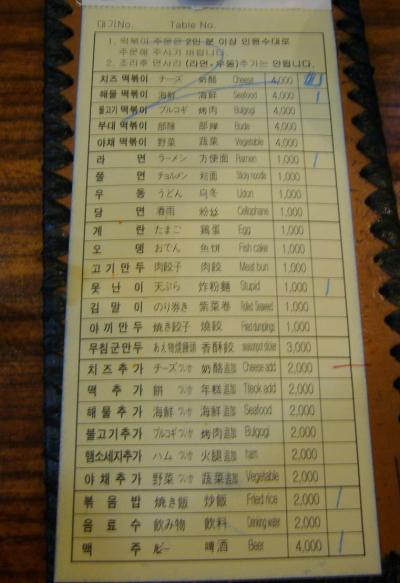 대기No. Table No.
1. 떡볶이 주문은 2인 분 이상 인원수대로
주문해 주시기 바랍니다.
2. 조리후 면사리 (라면·우동)추가는 안됩니다.
치즈 떡볶이 チーズ 奶酪 Cheese 4,000
해물 떡볶이 海鮮 海鮮 Seafood 4,000
불고기 떡볶이 プルコギ 烤肉 Bulgogi 4,000
부대 떡볶이 部隊 部隊 Bude 4,000
야채 떡볶이 野菜 蔬菜 Vegetable 4,000
라 면 ラーメン 方便面 Ramen 1,000
쫄 면 チョルメン 粘面 Sticky noodle 1,000
우 동 うどん 乌冬 Udon 1,000
당 면 春雨 粉丝 Cellophane 1,000
계 란 たまご 鶏蛋 Egg 1,000
오 뎅 おでん 鱼饼 Fish cake 1,000
고기만두 肉餃子 肉餃 Meat bun 1,000
못 난 이 天ぷら 炸粉麵 Stupid 1,000
김 말 이 のり券き 紫菜卷 Rolled Seaweed 1,000
야끼만두 焼き餃子 燒餃 Fried dumplings 1,000
무침군만두 香酥餃 3,000
치즈추가 チーズ 奶酪追加 Cheese add 2,000
떡 추 가 餅 年糕追加 Tteok add 2,000
해물추가 海鮮 海鮮追加 Seafood 2,000
불고기추가 プルコギ 烤肉追加 Bulgogi 2,000
햄소세지추가 ハム 火腿追加 ham 2,000
야채추가 野菜 蔬菜追加 Vegetable 2,000
볶 음 밥 焼き飯 炒飯 Fried rice 2,000
음 료 수 飲み物 飲料 Drinking water 2,000
맥 주 ビー 啤酒 Beer 4,000